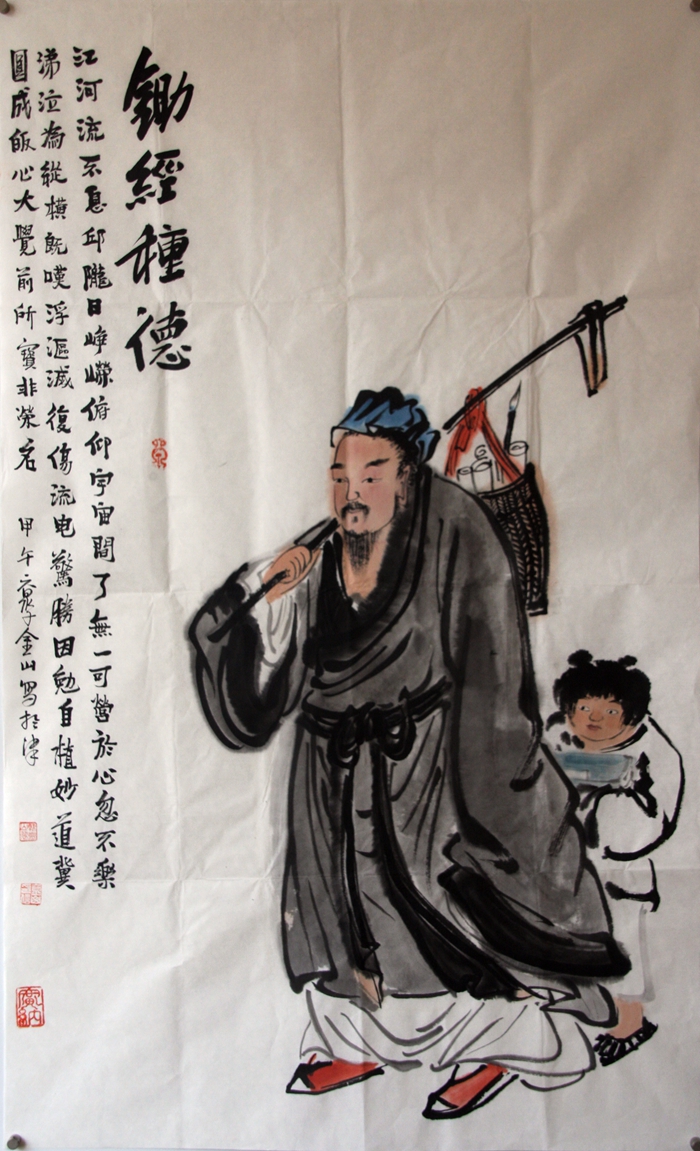 鋤經種德
江河流不息邱隴日崢嶸俯仰宇宙間了無一可營於心忽不樂
涕泣為縱橫既嘆浮漚滅復傷流电驚勝因勉自植妙道冀
圓成皈心大覺前所寶非榮名 甲午 金山写於津